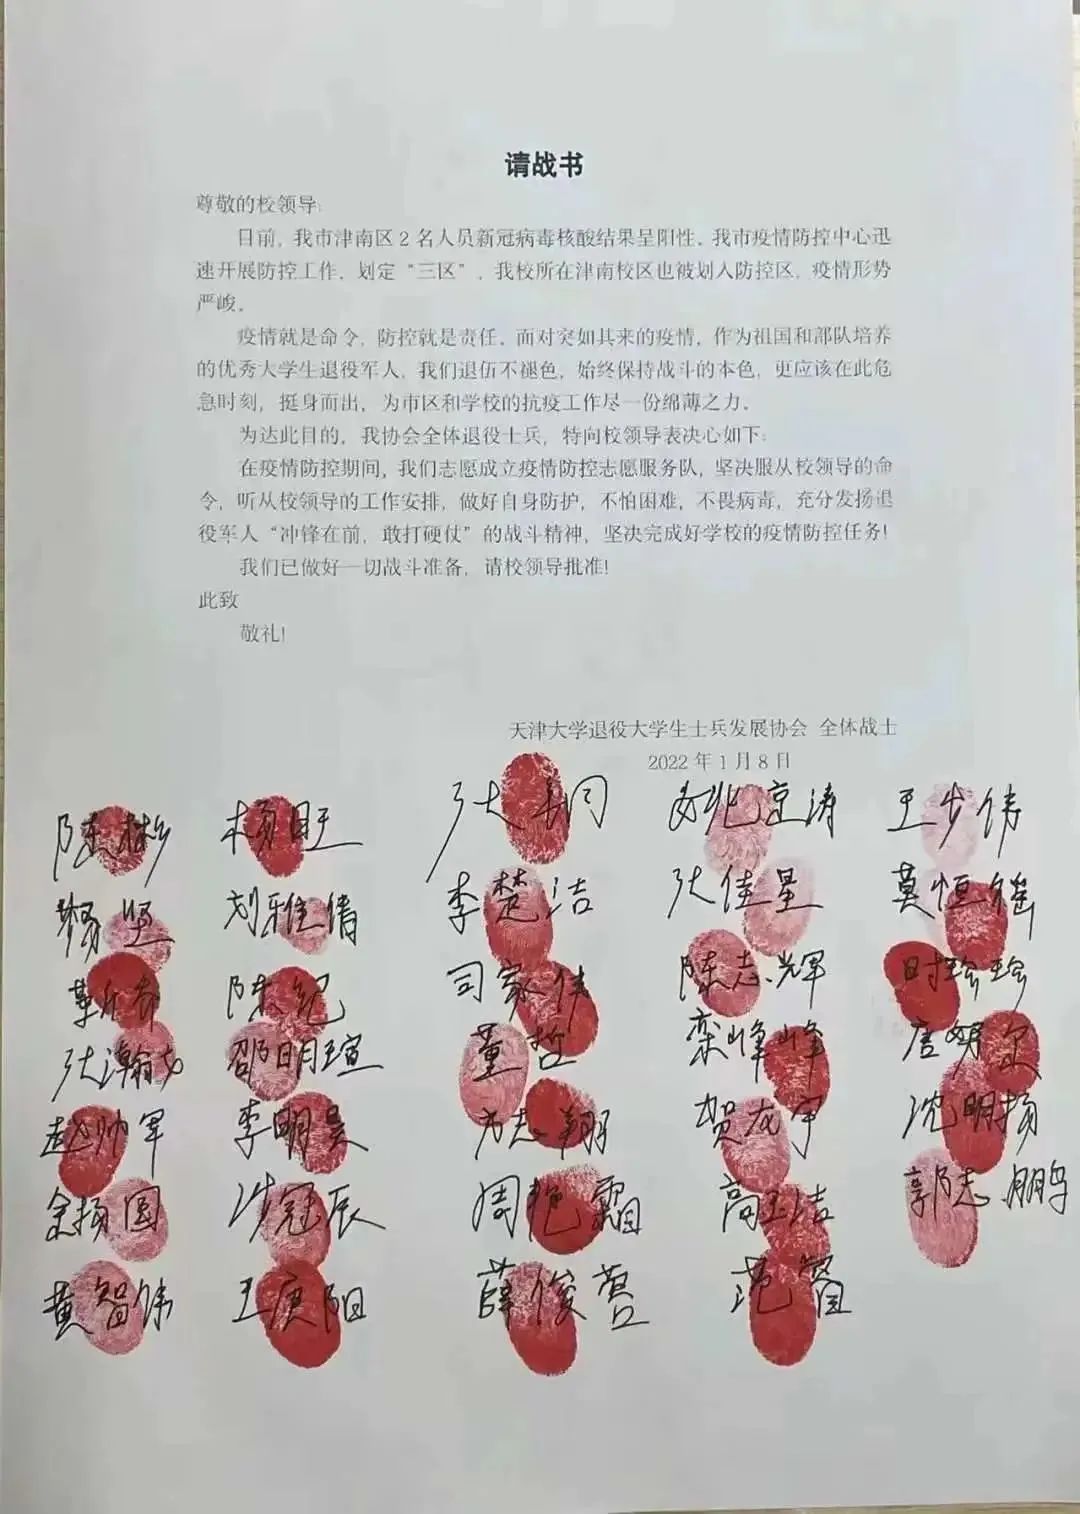 请战书
尊敬的校领导:
日前，我市津南区2名人员新冠病毒核酸结果呈阳性，我市疫情防控中心迅
速开展防控工作，划定“三区”，我校所在津南校区也被划入防控区，疫情形势
严峻。
疫情就是命令，防控就是责任。面对突如其来的疫情，作为祖国和部队培养
的优秀大学生退役军人，我们退伍不褪色，始终保持战斗的本色，更应该在此危
急时刻，挺身而出，为市区和学校的抗疫工作尽一份绵薄之力。
为达此目的，我协会全体退役士兵，特向校领导表决心如下:
在疫情防控期间，我们志愿成立疫情防控志愿服务队，坚决服从校领导的命
令，听从校领导的工作安排，做好自身防护，不怕困难，不畏病毒，充分发扬退
役军人“冲锋在前，敢打硬仗”的战斗精神，坚决完成好学校的疫情防控任务!
我们已做好一切战斗准备，请校领导批准!
此致
敬礼!
天津大学退役大学生士兵发展协会 全体战士
2022年1月8日
陈彬 杨旺 王步伟
杨坚 刘雅倩 李楚洁 张佳星 莫恒
陈纪 司家伟 陈志辉 时珍珍
张瀚 邵明瑄 董哲 栾峰峰 唐
赵帅军 李明昊 志翔 贺龙宇 沈明扬
余扬圆 沙冠辰 周艳霜 高玉洁 郭志鹏
黄智伟 王庚阳 薛俊 范